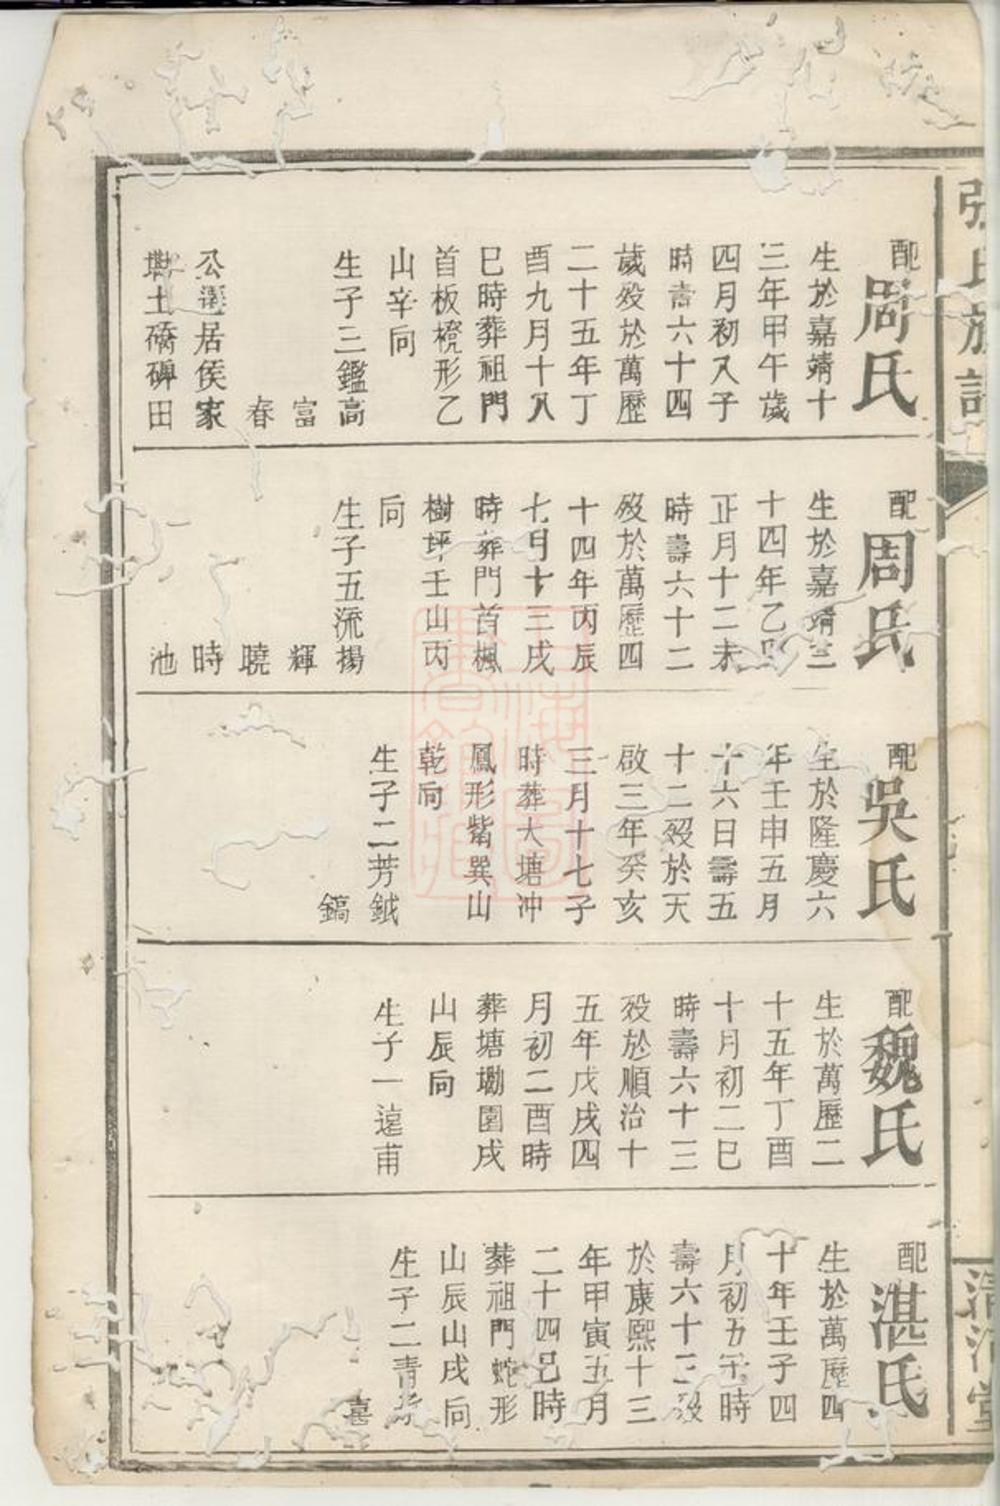 張氏族譜
清河堂
配周氏
生於嘉靖十
三年甲午歲
四月初八子
時壽六十四
歲歿於萬歷
二十五年丁
酉九月十八
巳時葬祖門
首板櫈形乙
山辛向
生子三鑑高
富
春
公遷居侯家
塅土礄碑田
配周氏
生於嘉靖二
十四年乙巳
正月十二未
時壽六十二
歿於萬歷四
十四年丙辰
七月十三戌
時葬門首楓
樹坪壬山丙
向
生子五流揚
輝
曉
時
池
配吳氏
生於隆慶六
年壬申五月
十六日壽五
十二歿於天
啟三年癸亥
三月十七子
時葬大塘冲
鳳形紫巽山
乾向
生子二芳鉞
鎬
配魏氏
生於萬歷二
十五年丁酉
十月初二巳
時壽六十三
歿於順治十
五年戊戌四
月初二酉時
葬塘塅園戌
山辰向
生子一遠甫
配湛氏
生於萬歷四
十年壬子四
月初五午時
壽六十三歿
於康熙十三
年甲寅五月
二十四巳時
葬祖門蛇形
山辰山戌向
生子二青
喜